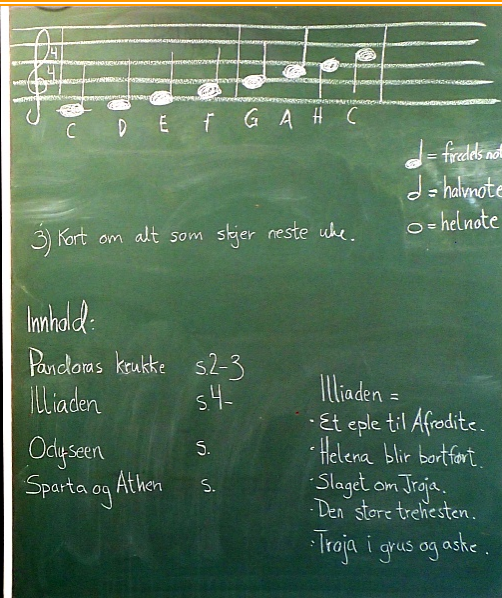 4
4
C D E F G A H C
= firedels not
= halvnote
= helnote
3) Kort om alt som skjer neste uke.
Innhold:
Pandoras krukke s.2-3
Illiaden s.4-
Odyseen s.
Sparta og Athen s.
Illiaden =
· Et eple til Afrodite.
· Helena blir bortført.
· Slaget om Troja.
· Den store trehesten.
· Troja i grus og aske.